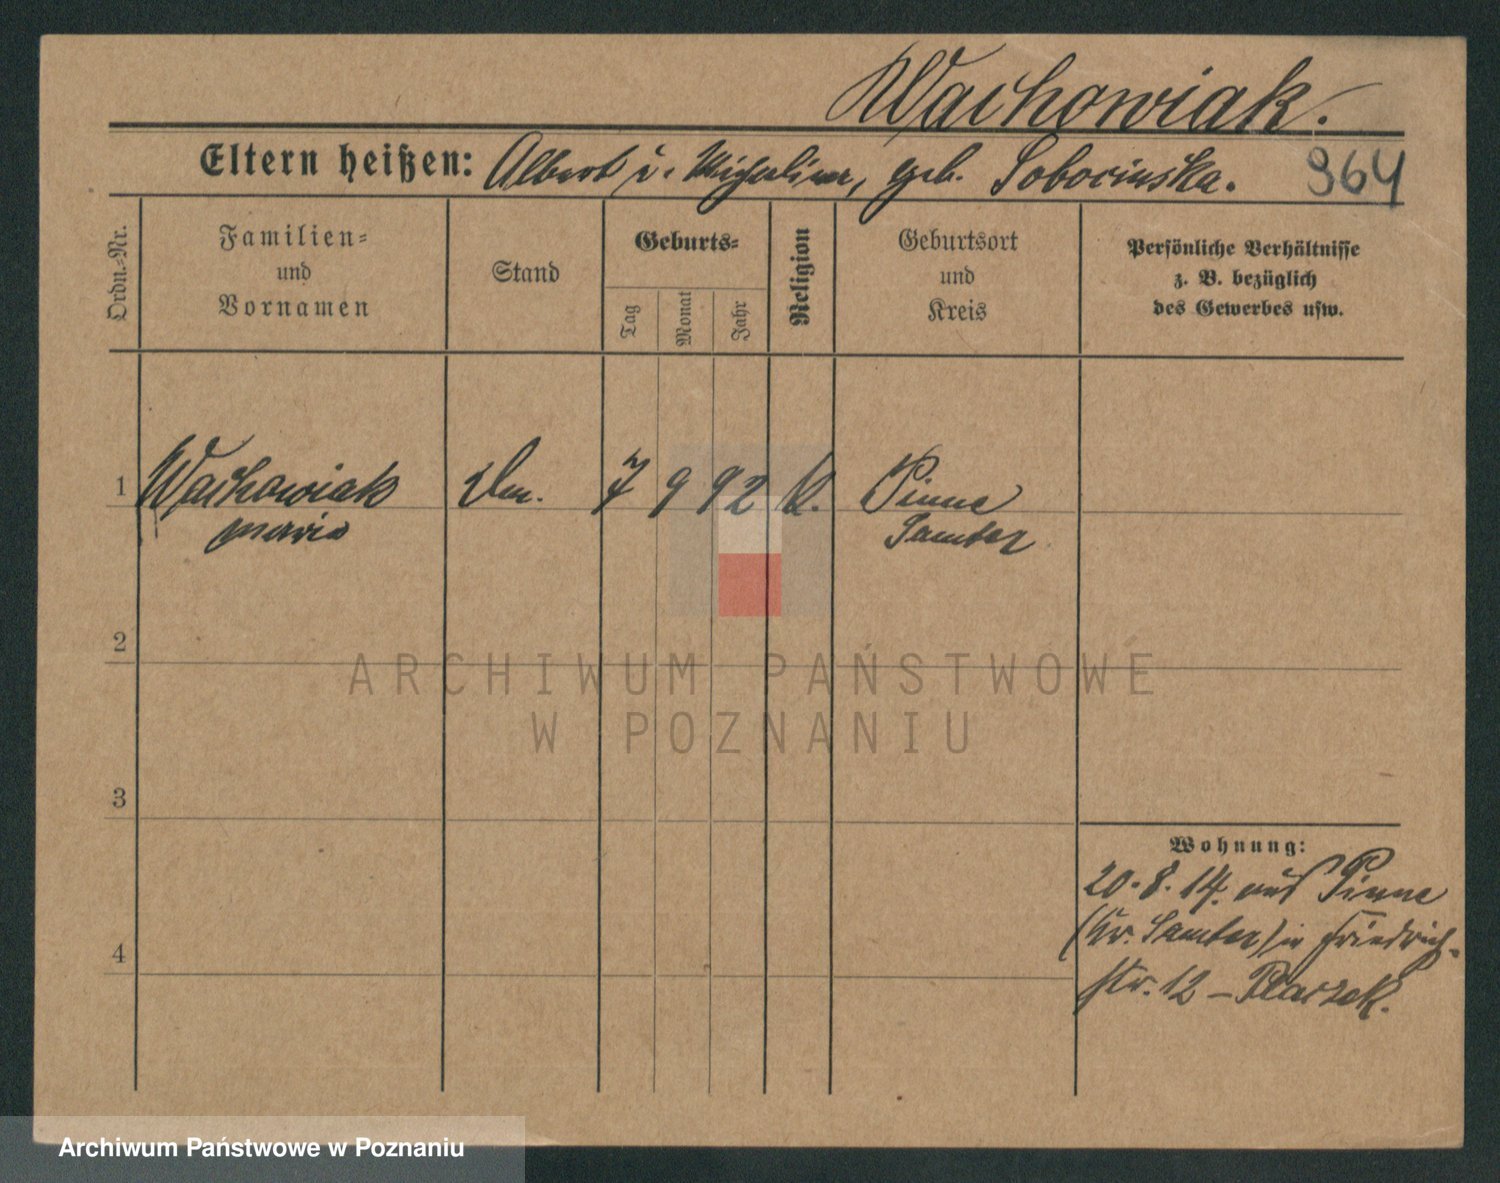 Wachowiak.
Eltern heißen: Albert u. Michalina, geb. Sobocinska. 964
Ordn.-Nr.
Familien-
und
Vornamen
Stand
Geburts-
Tag
Monat
Jahr
Religion
Geburtsort
und
Kreis
Persönliche Verhältnisse
z. B. bezüglich
des Gewerbes usw.
1 Wachowiak 7 9 92 K. Pinne
Maria Samter
2
ARCHIWUM PAŃSTWOWE
W POZNANIU
3
Wohnung:
20.8.14. aus Pinne
(Kr. Samter) in Friedrich-
4
str. 12 – Placzek.
Archiwum Państwowe w Poznaniu